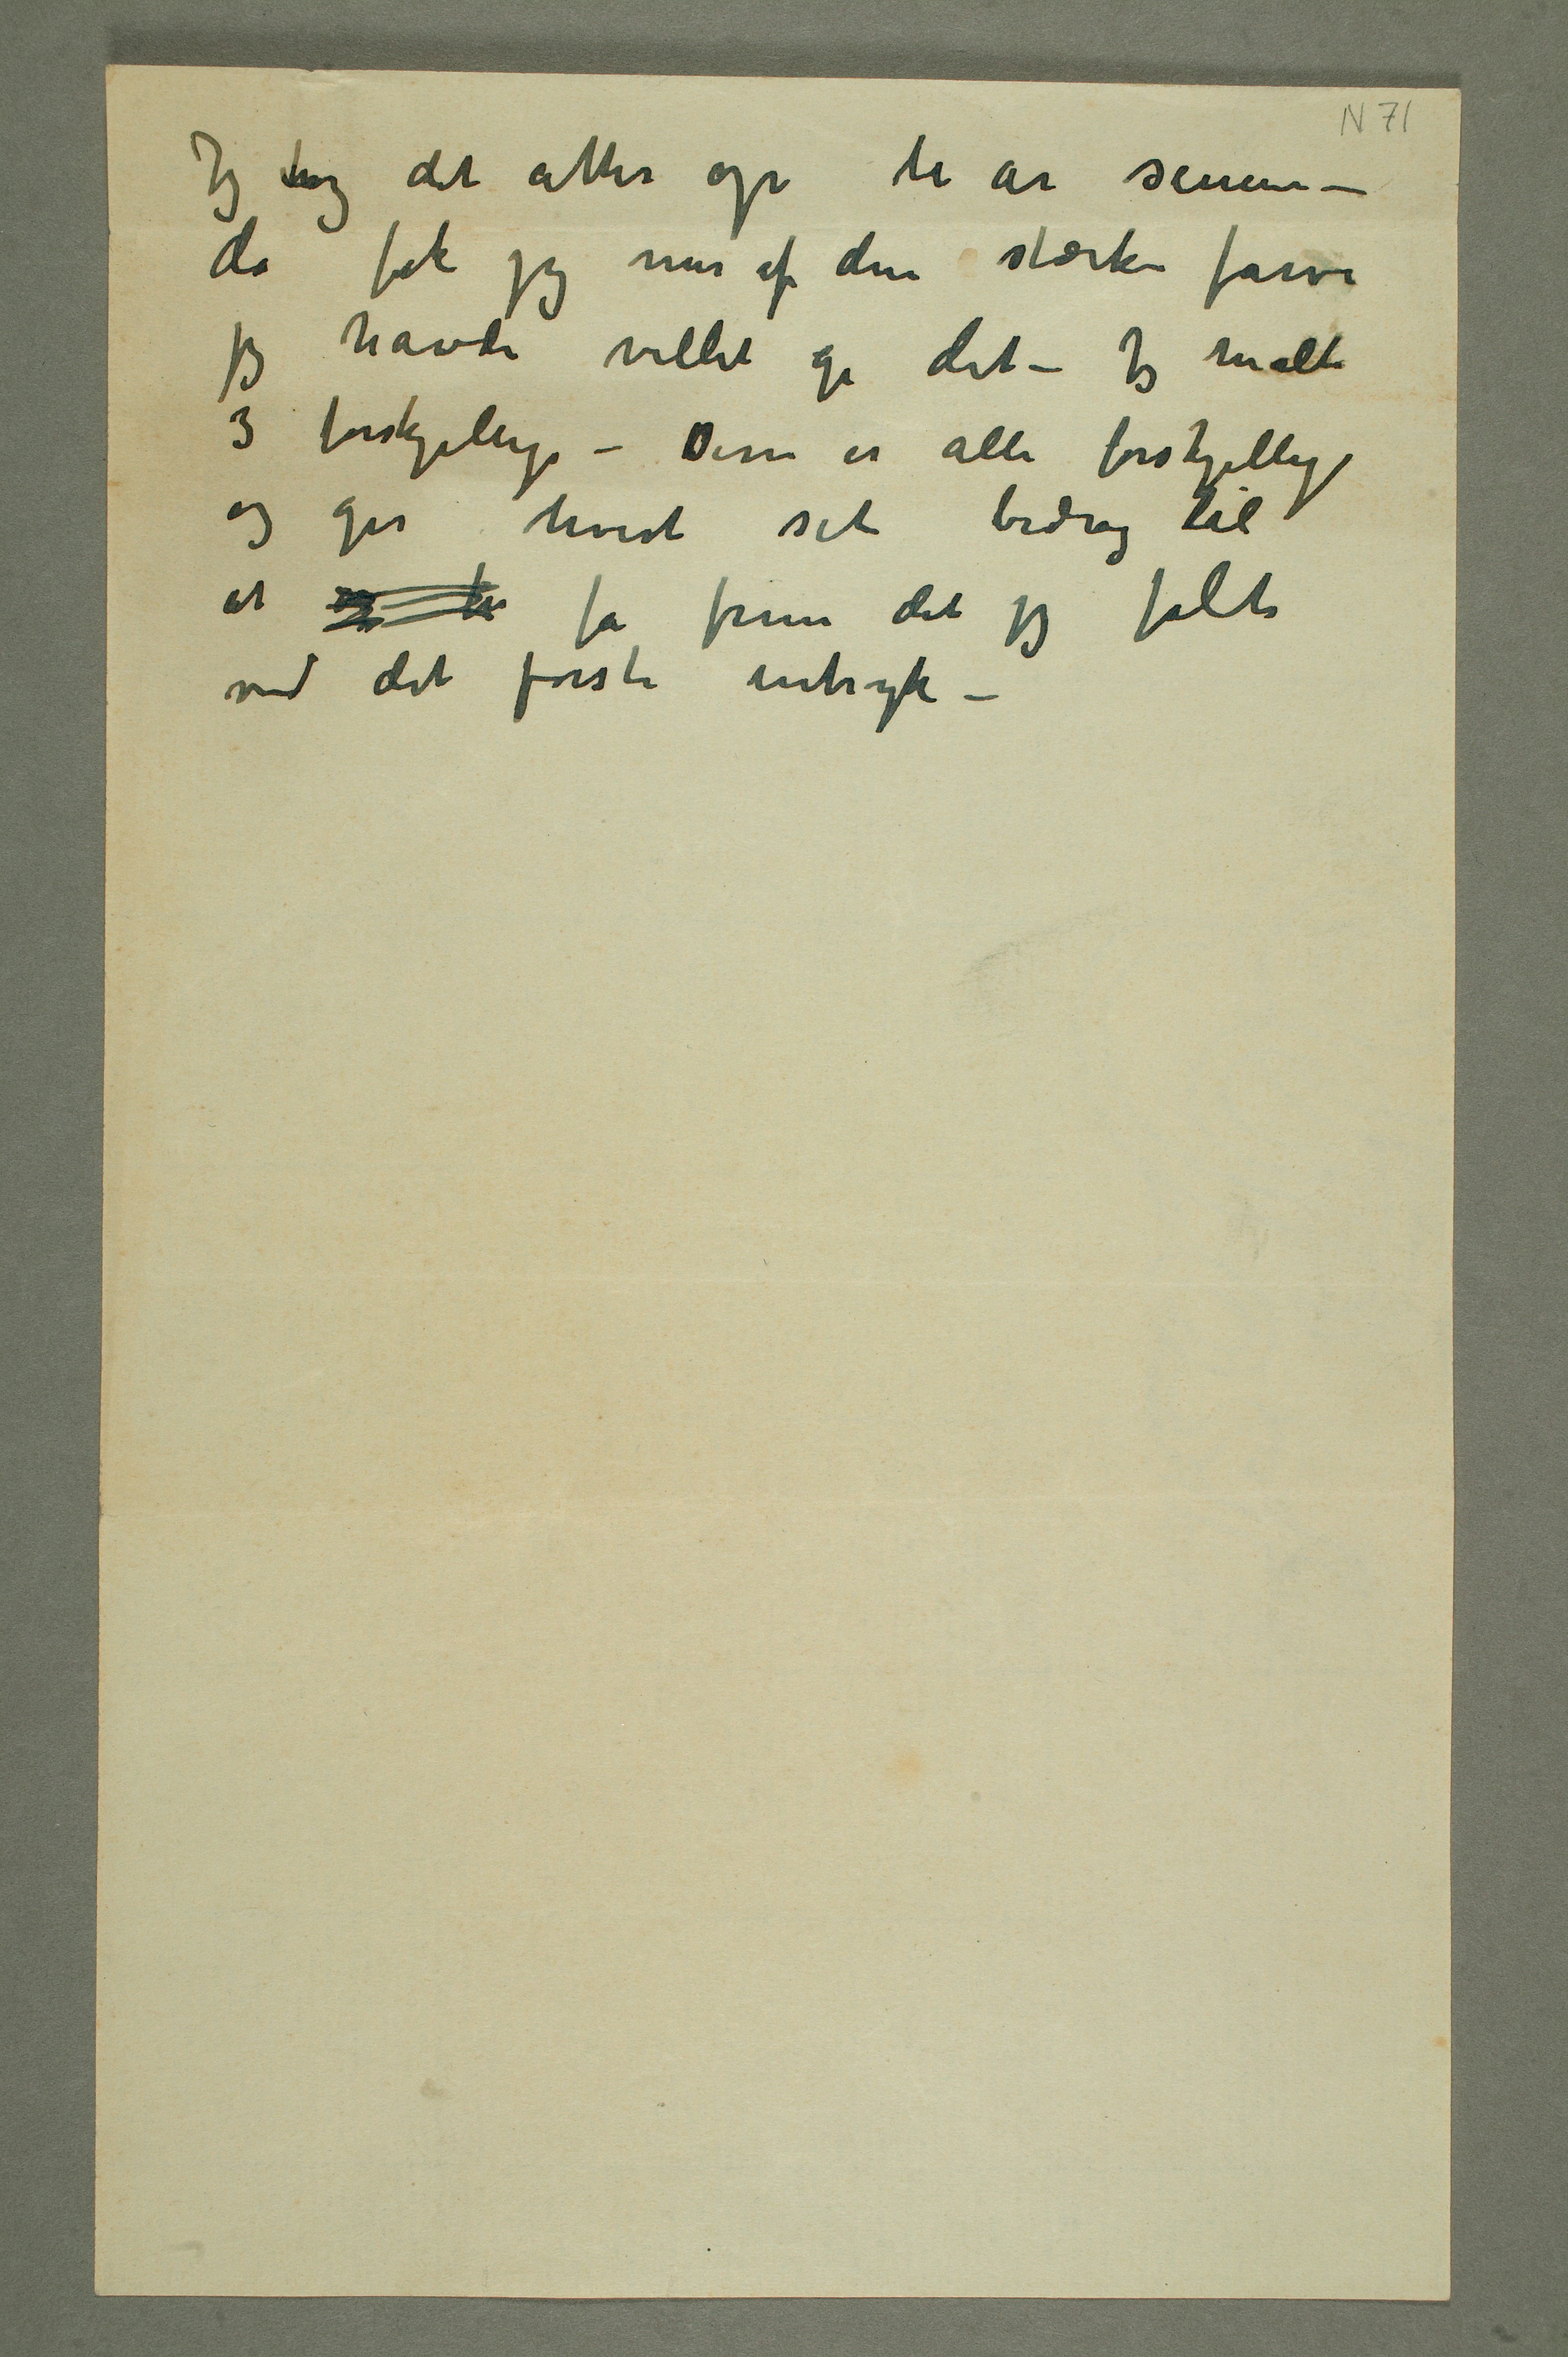 N 71
Jeg tog det atter op ti år senere –
da fik jeg mer af den stærke farve
jeg havde villet gi det – Jeg malte
3 forskjellige – Disse er alle forskjellige
og gir hvert sit bidrag til
at få frem det jeg følte
ved det første indtryk –